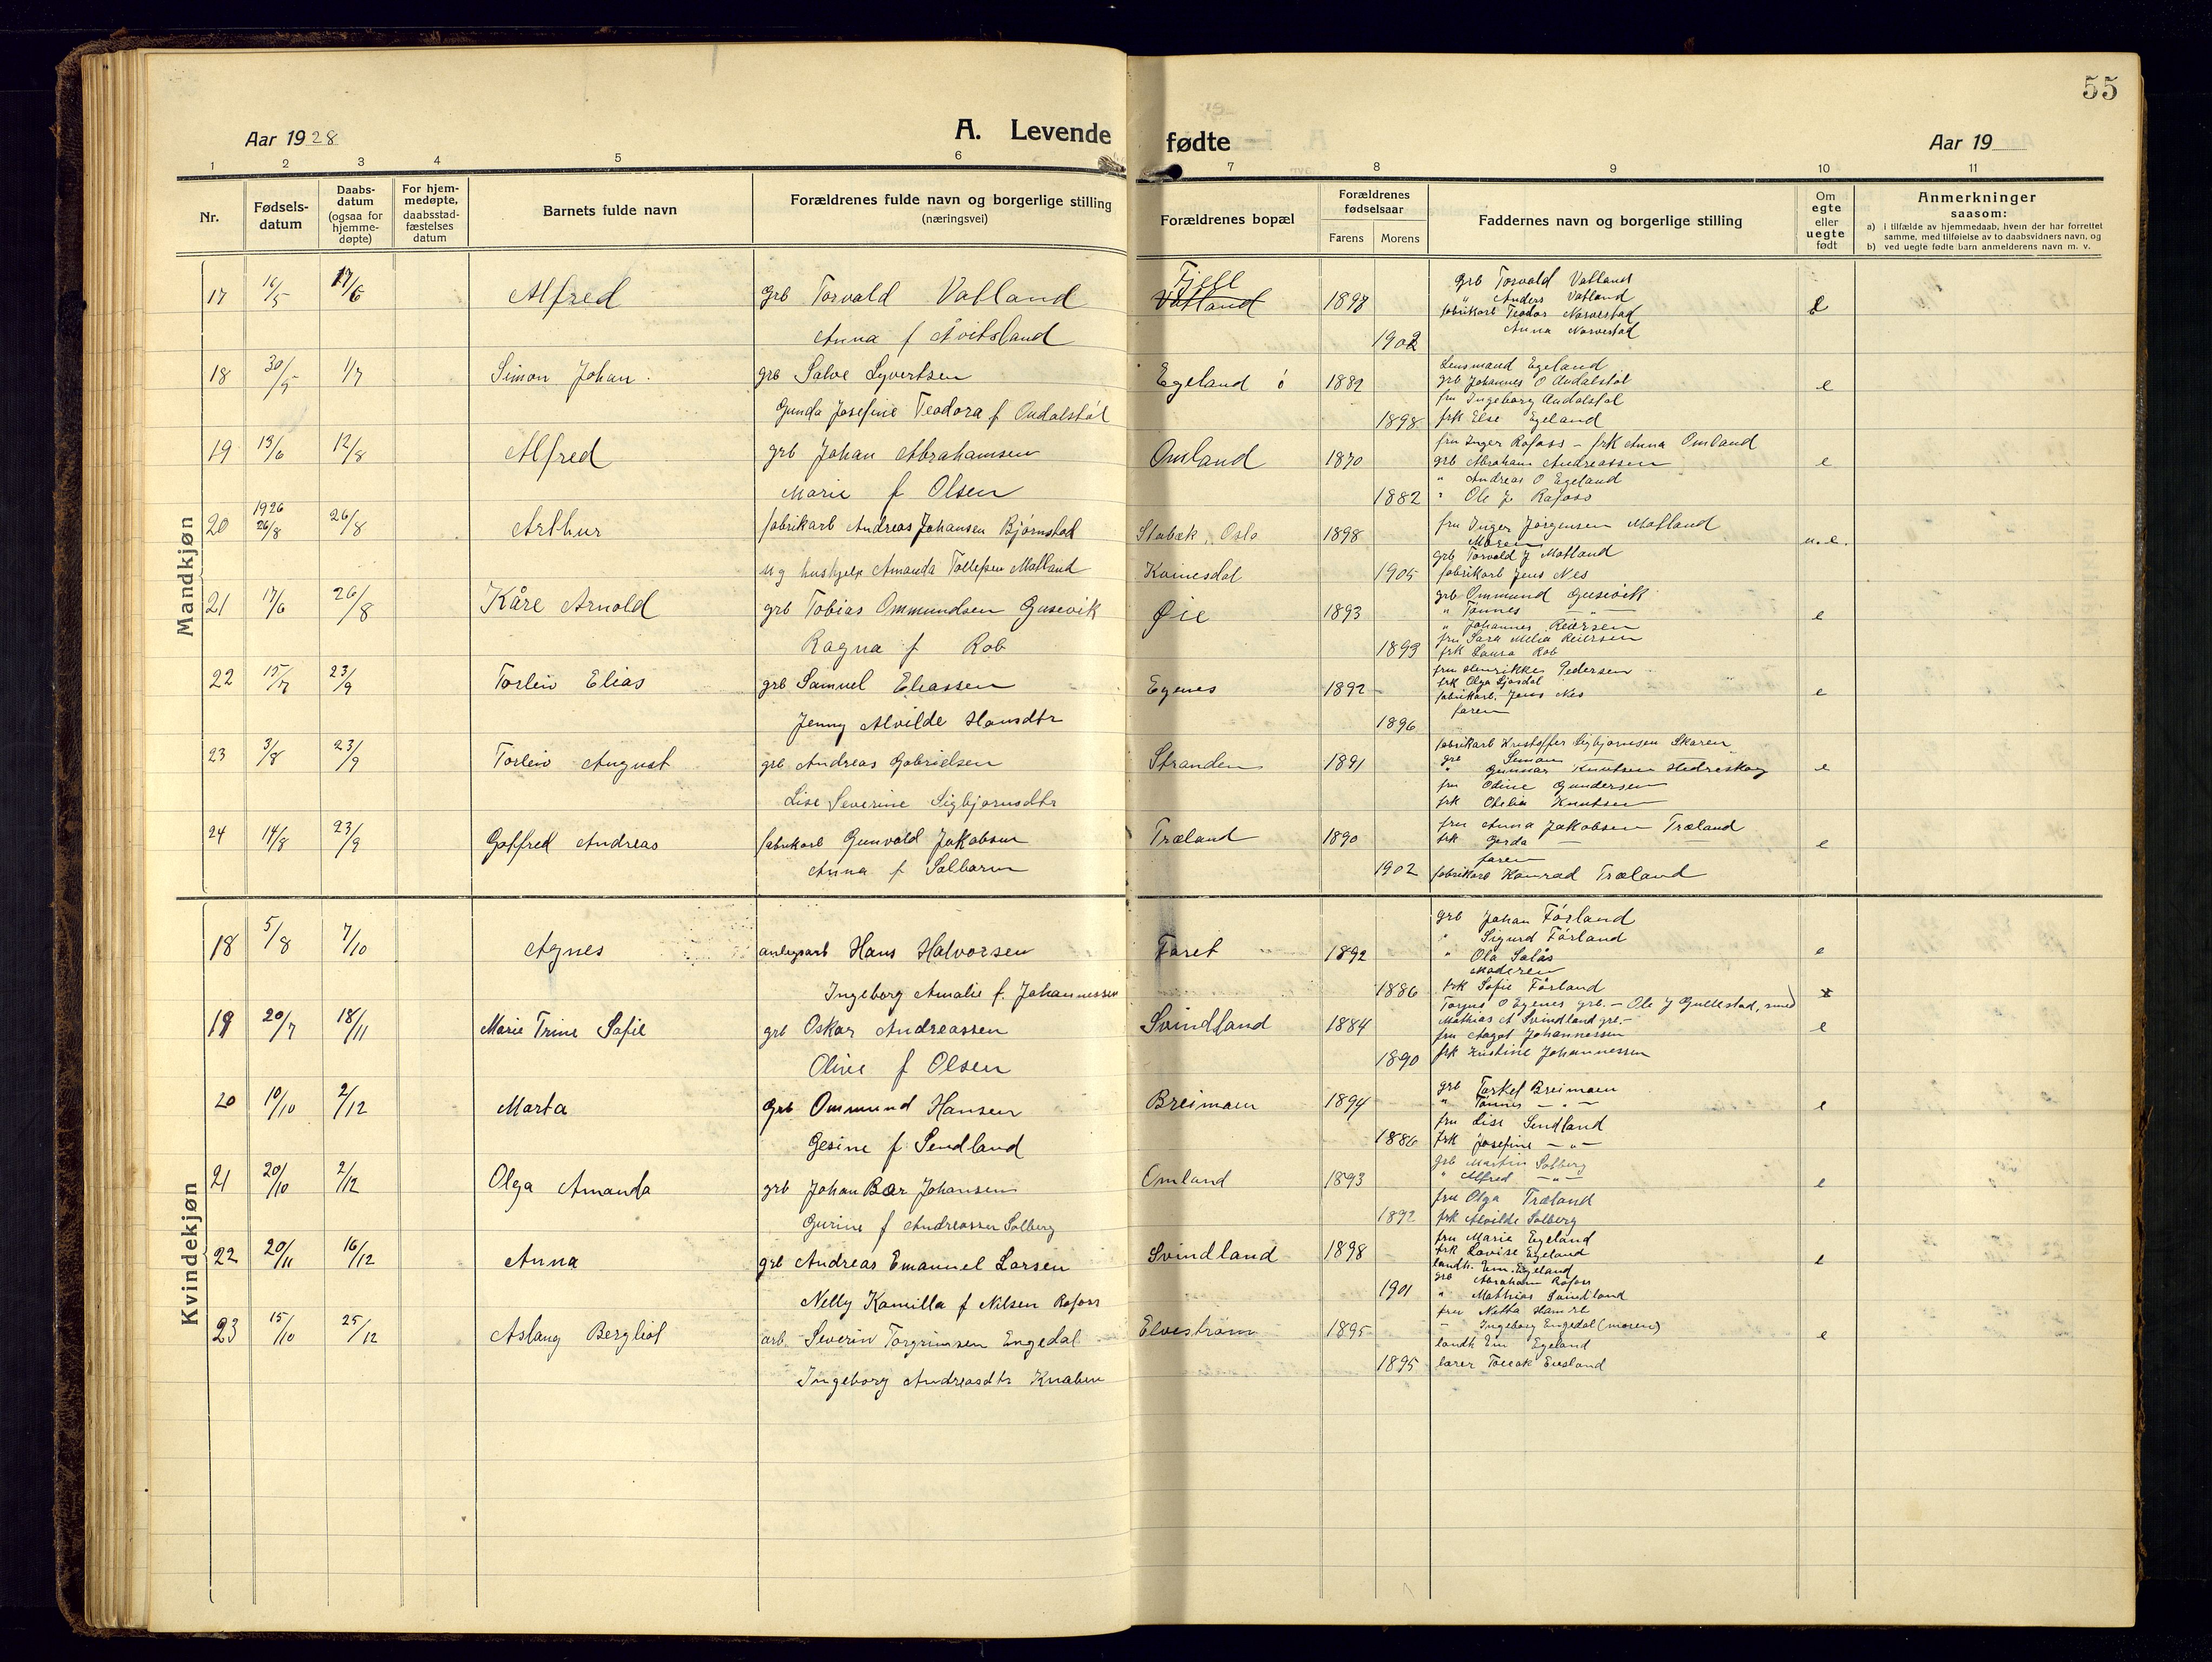 55
Aar 1928
A. Levende fødte
Aar 19
1 2 3 4 5 6 7 8 9 10 11
Nr.
Fødsels-
datum
Daabs-
datum
(ogsaa for
hjemme-
døpte)
For hjem-
medøpte,
daabsstad-
fæstelses
datum
Barnets fulde navn
Forældrenes fulde navn og borgerlige stilling
(næringsvei)
Forældrenes bopæl
Forældrenes
fødselsaar
Farens Morens
Faddernes navn og borgerlige stilling
Om
egte
eller
uegte
født
Anmerkninger
saasom:
a) i tilfælde av hjemmedaab, hvem der har forrettet
samme, med tilføielse av to daabsvidners navn, og
b) ved uegte fødte barn anmelderens navn m. v.
Mandkjøn
17 16/5 17/6 Alfred grb Torvald Vatland Fjell Vatland 1898 e
Anna f Åvitsland 1902
grb Torvald Vatland
" Anders Vatland
fabrikarb Teodor Narvestad
Anna Narvestad
18 30/5 1/7 Simon Johan. grb Salve Syvertsen Egeland ö 1882 e
Gunda Josefine Teodora f Audalstöl 1898
Lensmand Egeland
grb Johannes O Audalstöl
fru Ingeborg Audalstöl
frk Else Egeland
19 13/6 12/8 Alfred grb Johan Abrahamsen Omland 1870 e
Marie f Olsen 1882
fru Inger Rafoss - frk Anna Omland
grb Abraham Andreassen
" Andreas O Egeland
" Ole J Rafoss
20 1926 26/8 26/8 Arthur fabrikarb Andreas Johansen Bjørnstad Stabæk, Oslo 1898 u.e.
ug hushjelp Amanda Tollefsen Matland Kvinesdal 1905
fru Inger Jørgensen Matland
Moren
grb Torvald J Matland
fabrikarb Jens Nes
21 17/6 26/8 Kåre Arnold grb Tobias Ommundsen Gusevik Øie 1893 e
Ragna f Rob 1893
grb Ommund Gusevik
" Tønnes — " —
" Johannes Reiersen
fru Sara Melia Reiersen
frk Laura Rob
22 15/7 23/9 Torleiv Elias grb Samuel Eliassen Egenes 1892 e
Jenny Alvilde Hansdtr 1896
fru Henrikke Pedersen
frk Olga
fabrikarb. Jens Nes
faren
23 3/8 23/9 Torleiv August grb Andreas Gabrielsen Stranden 1891 e
Lise Severine Sigbjørnsdtr
fabrikarb Kristoffer Sigbjørnsen Skaren
grb Simon —
" Gunnar Knutsen Hedreskog
fru Odine Gundersen
frk Otelia Knutsen
24 14/8 23/9 Gotfred Andreas fabrikarb Gunvald Jakobsen Træland 1890 e
Anna f Solbarm 1902
fru Anna Jakobsen Træland
frk Gerda — —
faren
fabrikarb Konrad Træland
Kvindekjøn
18 5/8 7/10 Agnes anlegsarb Hans Halvorsen Faret 1892 e
Ingeborg Amalie f. Johannessen 1886
grb Johan Førland
" Sigurd Førland
" Ola Salås
Moderen
frk Sofie Førland
19 20/7 18/11 Marie Trine Sofie grb Oskar Andreassen Svindland 1884 e
Olive f Olsen 1890
O Egenes grb. - Ole J Gullestad, smed
Mathias A Svindland grb.-
fru Aagot Johannessen
frk Kristine Johannessen
20 10/10 2/12 Marta grb Ommund Hansen Breimoen 1894 e
Gesine f. Sendland 1886
grb Torkel Breimoen
" Tønnes — " —
fru Lise Sendland
frk Josefine — " —
21 20/10 2/12 Olga Amanda grb Johan Bær Johansen Omland 1893 e
Gurine f Andreassen Solberg 1892
grb Martin Solberg
" Alfred — " —
fru Olga Træland
frk Alvilde Solberg
22 20/11 16/12 Anna grb Andreas Emanuel Larsen Svindland 1898 e
Nelly Kamilla f Nilsen Rafoss 1901
fru Marie Egeland
frk Lovise Egeland
landh. Em. Egeland
grb Abraham Rafoss
" Mathias Svindland
23 15/10 25/12 Aslaug Bergliot arb. Severin Torgrimsen Engedal Elvestrøm 1895 e
Ingeborg Andreasdtr Knaben 1895
fru Netta Hamre
— Ingeborg Engedal (moren)
landh Em Egeland
lærer